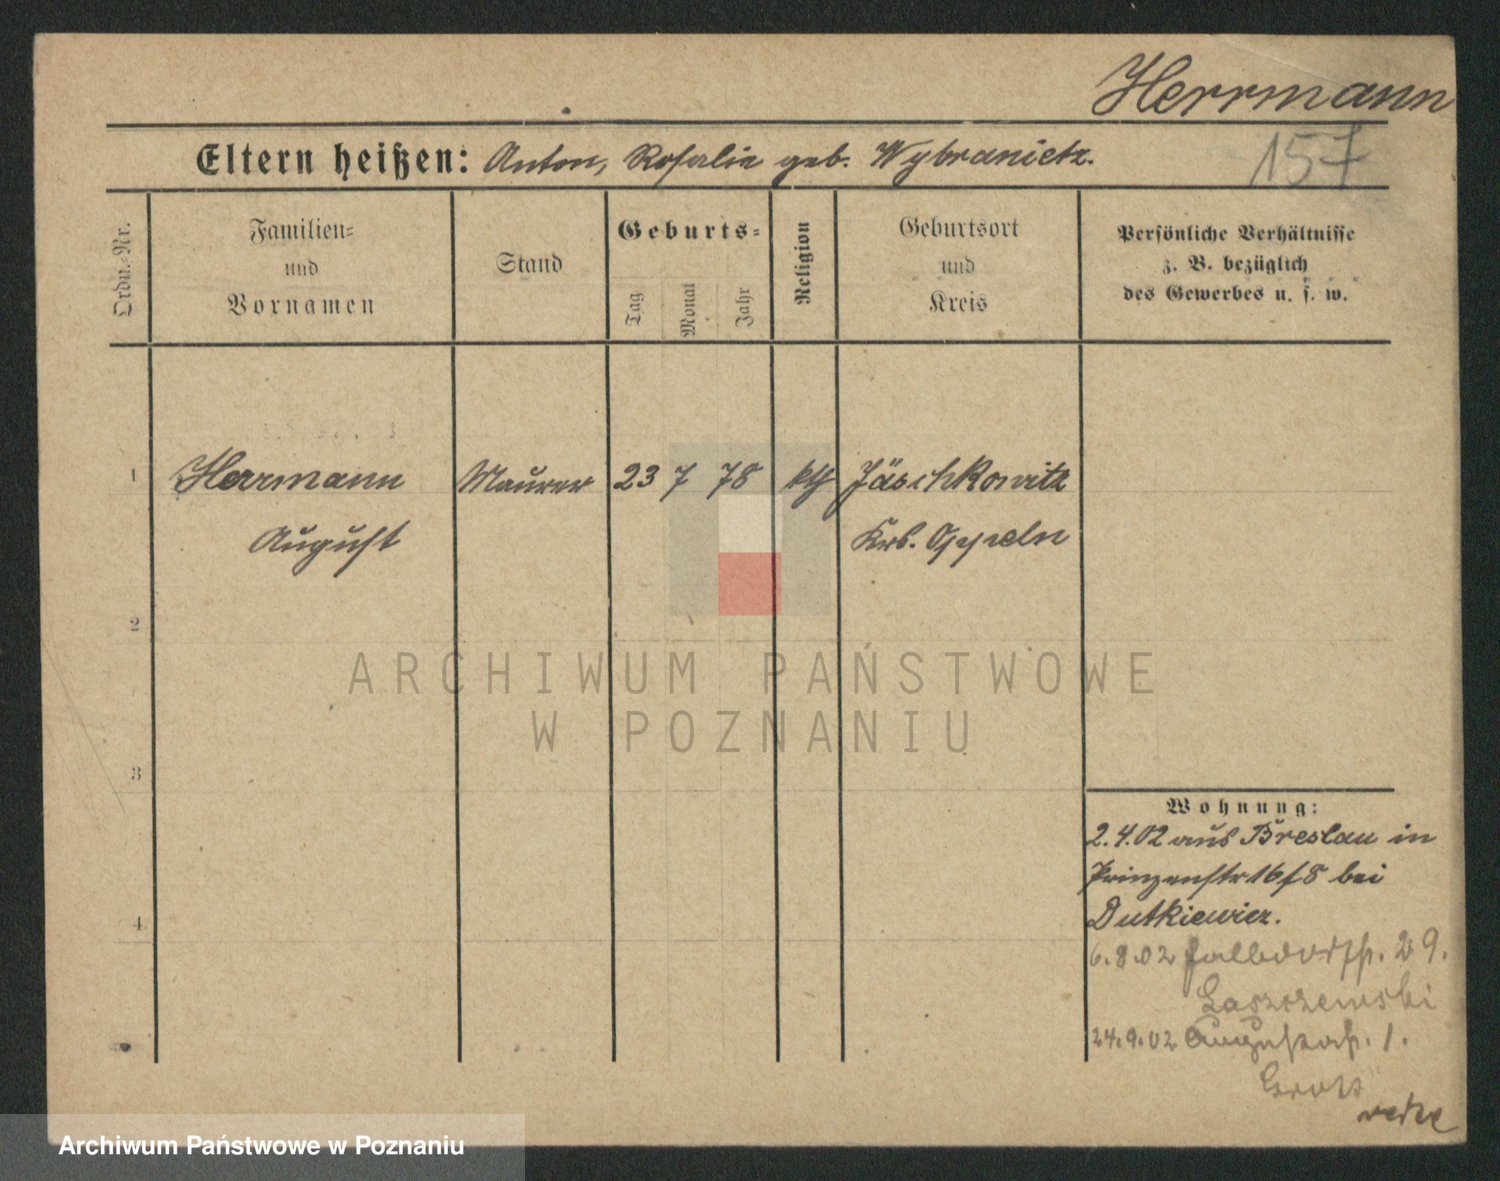 Herrmann
157
Eltern heißen: Anton, Rosalie geb. Wybranietz.
Ordn.-Nr.
Familien- und Vornamen
Stand
Geburts-
Tag
Monat
Jahr
Religion
Geburtsort und Kreis
Persönliche Verhältnisse
z. B. bezüglich
des Gewerbes u. s. w.
1 Herrmann Maurer 23 7 78 kth Jäschkowitz
August Krs. Oppeln
2
3
4
5
ARCHIWUM PAŃSTWOWE
W POZNANIU
Wohnung:
2.4.02 aus Breslau in
Prinzenstr 16/8 bei
Dutkiewicz.
6.8.02 29.
Laszczewski
24.9.02 Augustastr. 1.
Archiwum Państwowe w Poznaniu